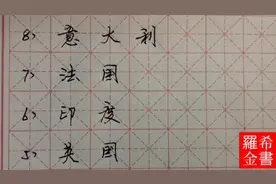 8、意大利
7、法国
6、印度
5、英国
羅希
金書